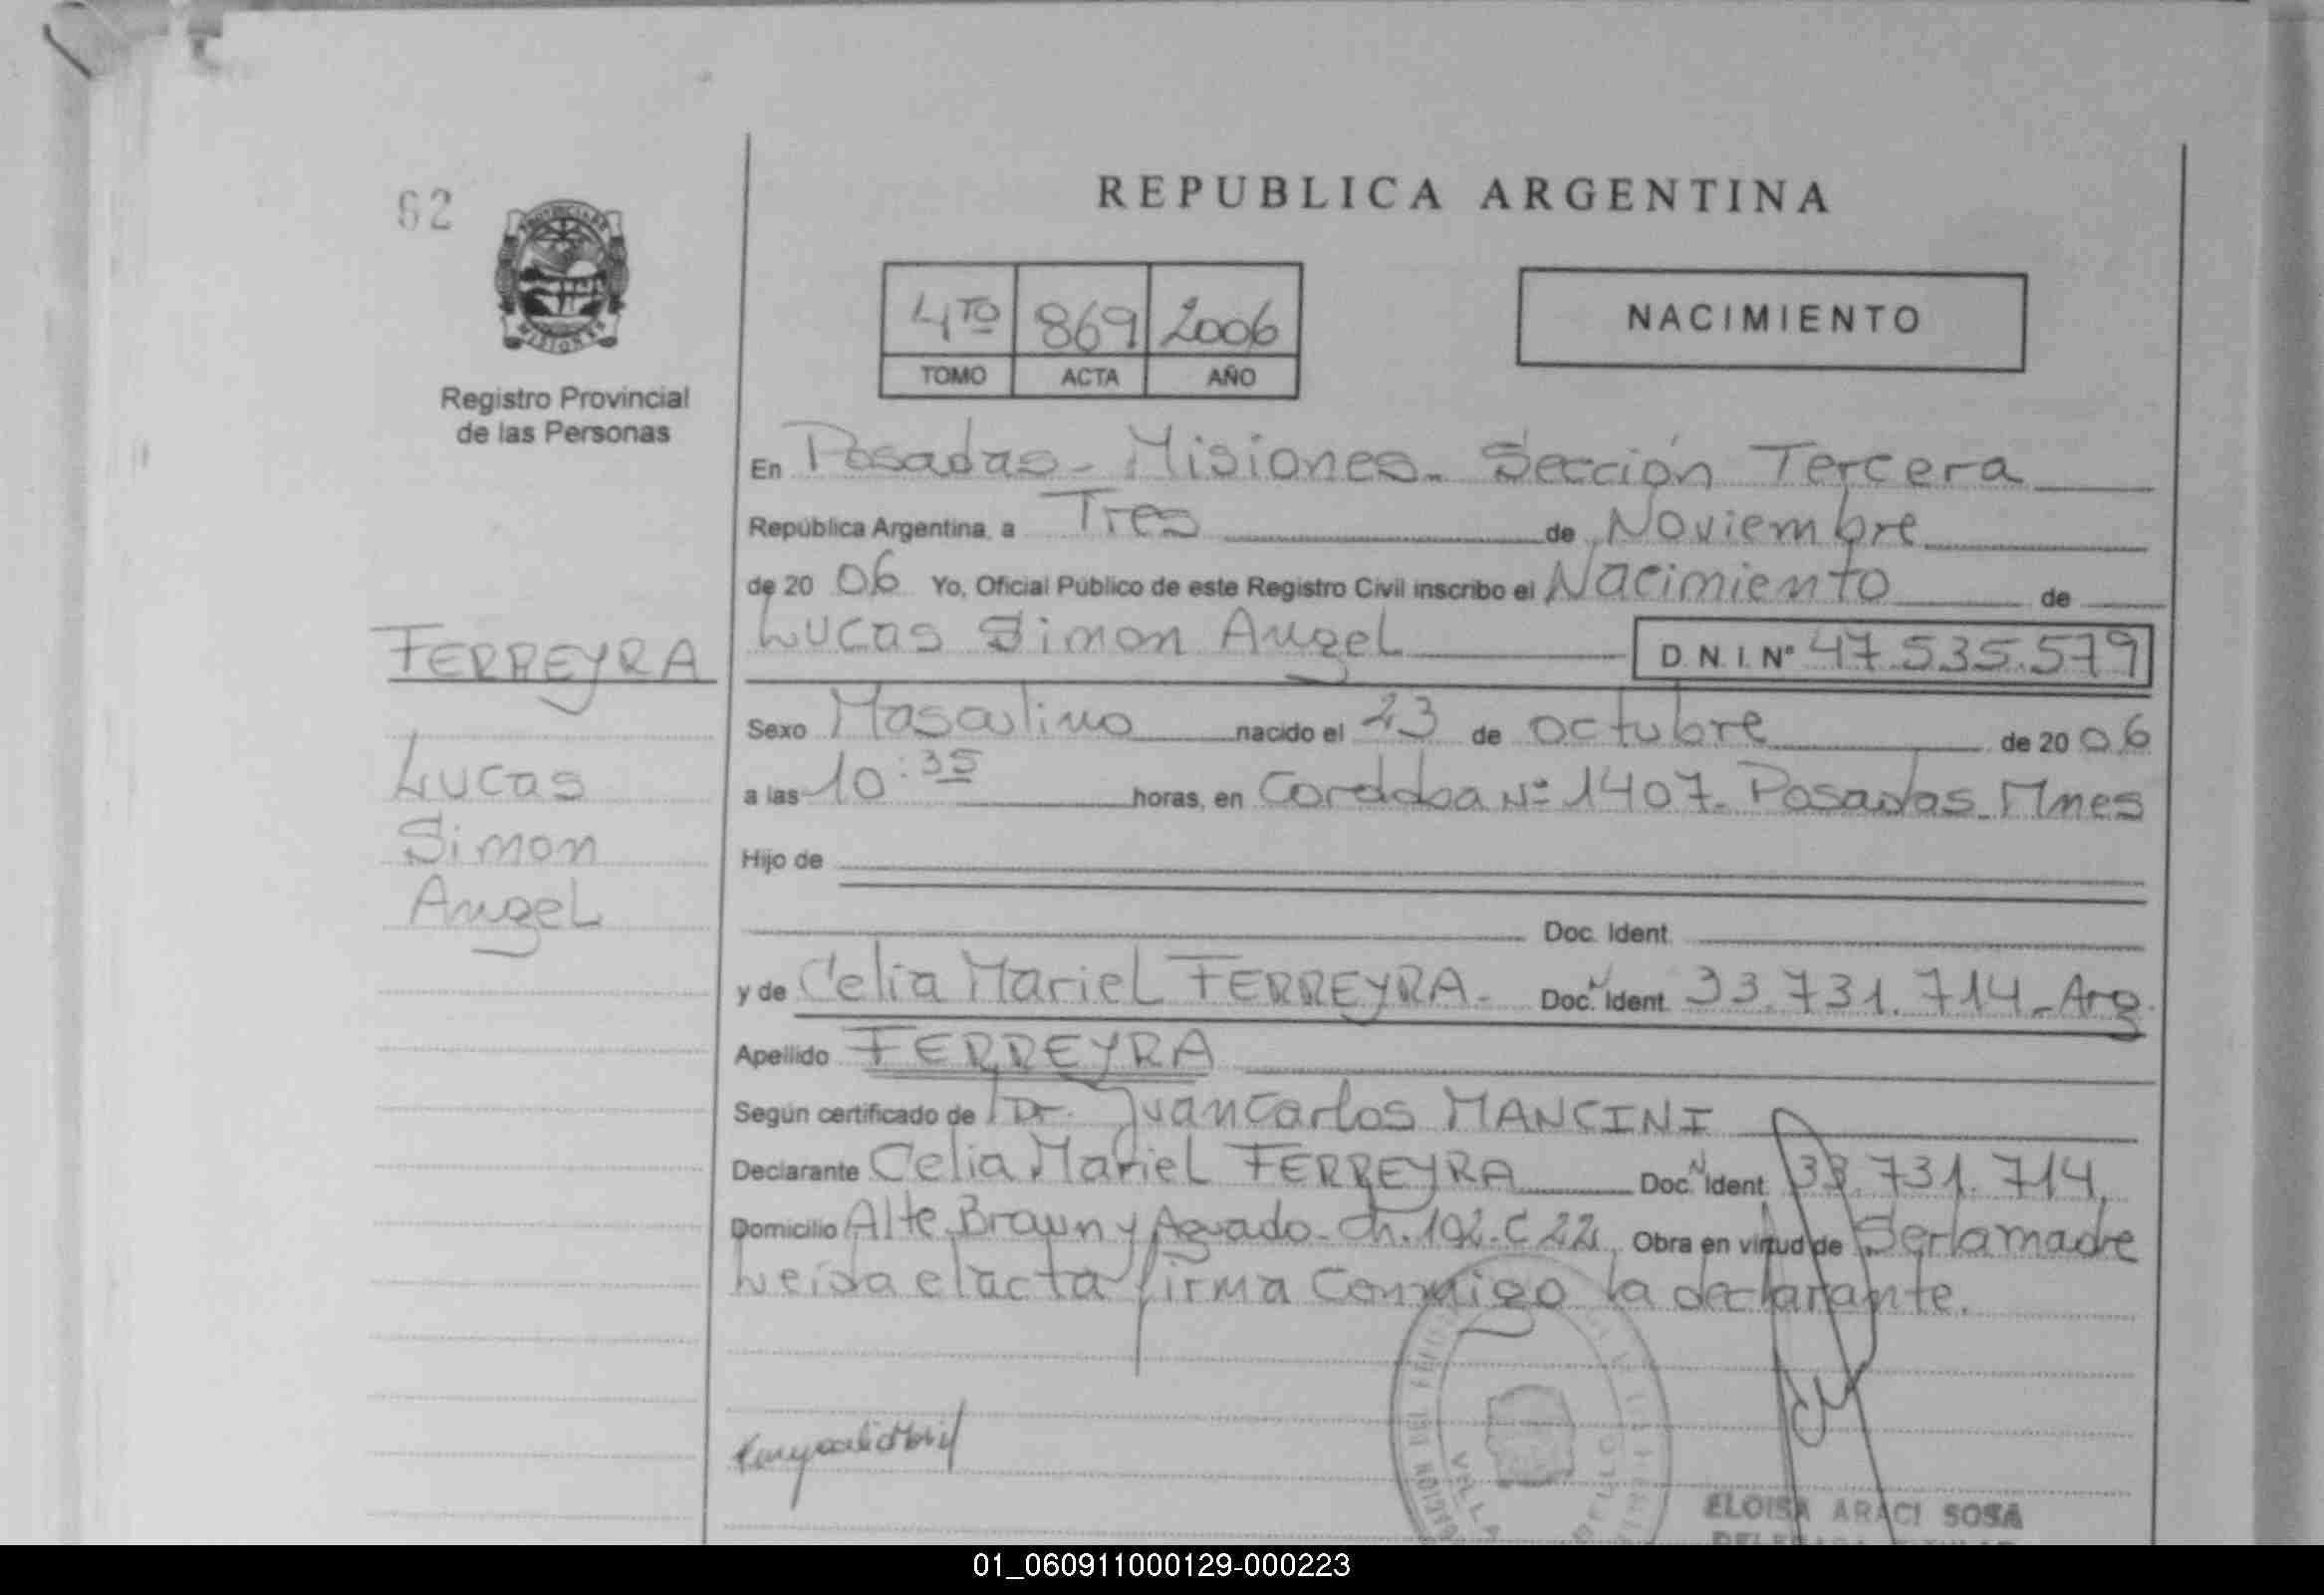 62
REPUBLICA ARGENTINA
4TO 869 2006
TOMO ACTA AÑO
NACIMIENTO
Registro Provincial
de las Personas
En Posadas - Misiones - Sección Tercera
República Argentina, a Tres de Noviembre
de 20 06 Yo, Oficial Público de este Registro Civil inscribo el Nacimiento de
Lucas Simon Angel D.N.I. Nº 47.535.579
FERREYRA
Lucas
Simon
Angel
Sexo Masculino nacido el 23 de octubre de 20 06
a las 10:35 horas, en Cordoba Nº 1407 - Posadas - Mnes
Hijo de
Doc. Ident.
y de Celia Mariel FERREYRA - Doc. Ident. 33.731.714 - Arg.
Apellido FERREYRA
Según certificado de Dr. Juan Carlos MANCINI
Declarante Celia Mariel FERREYRA Doc. Ident. 33.731.714,
Domicilio Alte. Brown y Aguado - Ch. 192 - C 22, Obra en virtud de Ser la madre
Leida el acta firma Conmigo la declarante.
VILLA
ELOISA ARACI SOSA
01_060911000129-000223